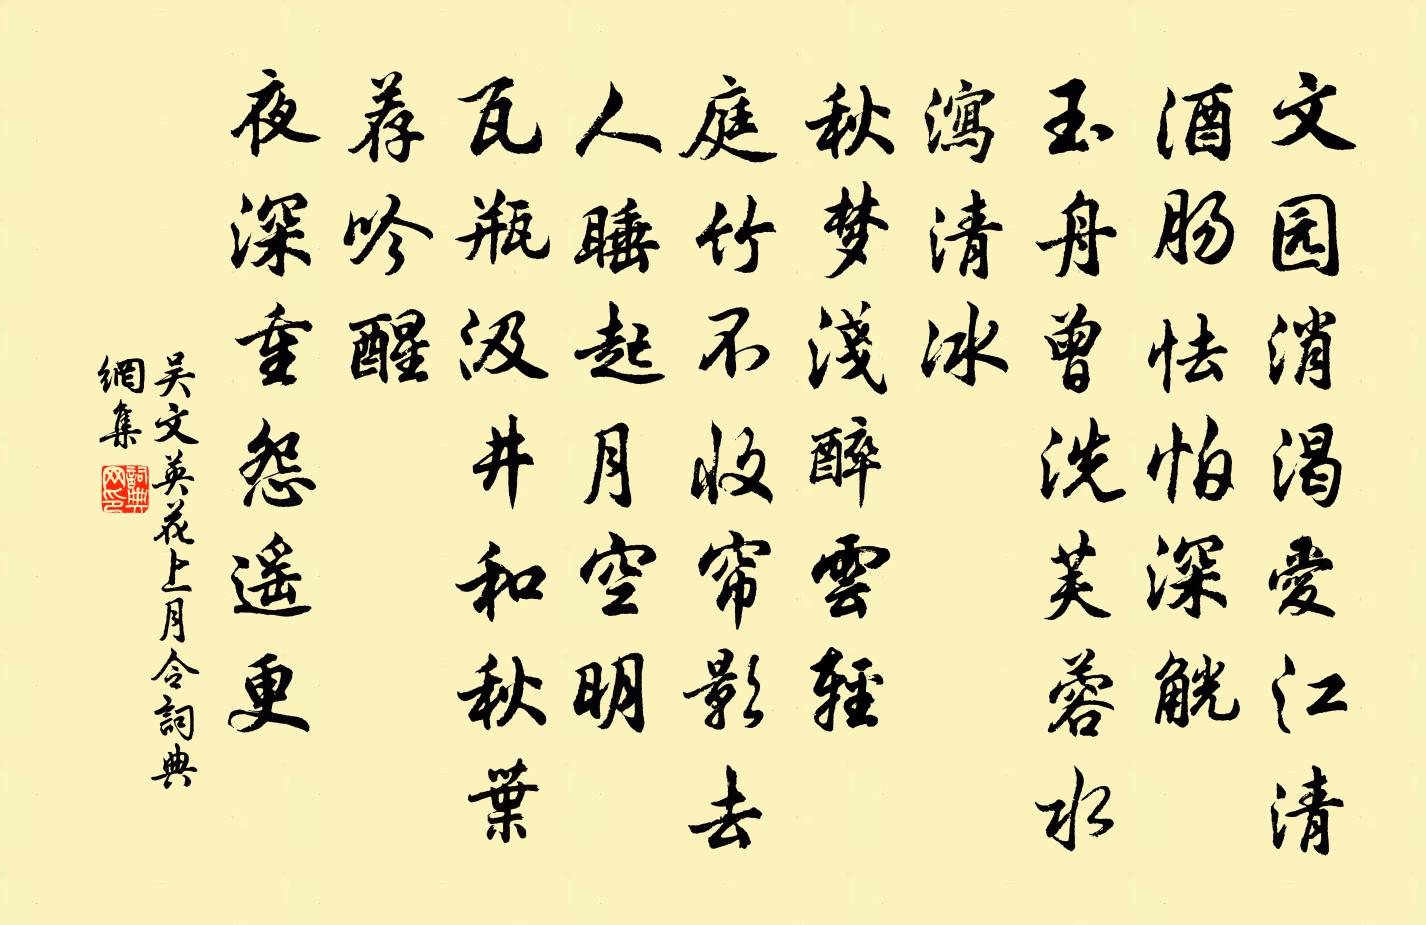 文园消渴愛江清
酒肠怯怕深觥
玉舟曾洗芙蓉水
瀉清冰
秋梦淺醉雲輕
庭竹不收帘影去
人睡起月空明
瓦瓶汲井和秋葉
荐吟醒
夜深重怨遥更
吴文英花上月令詞典
網集
詞典
网印